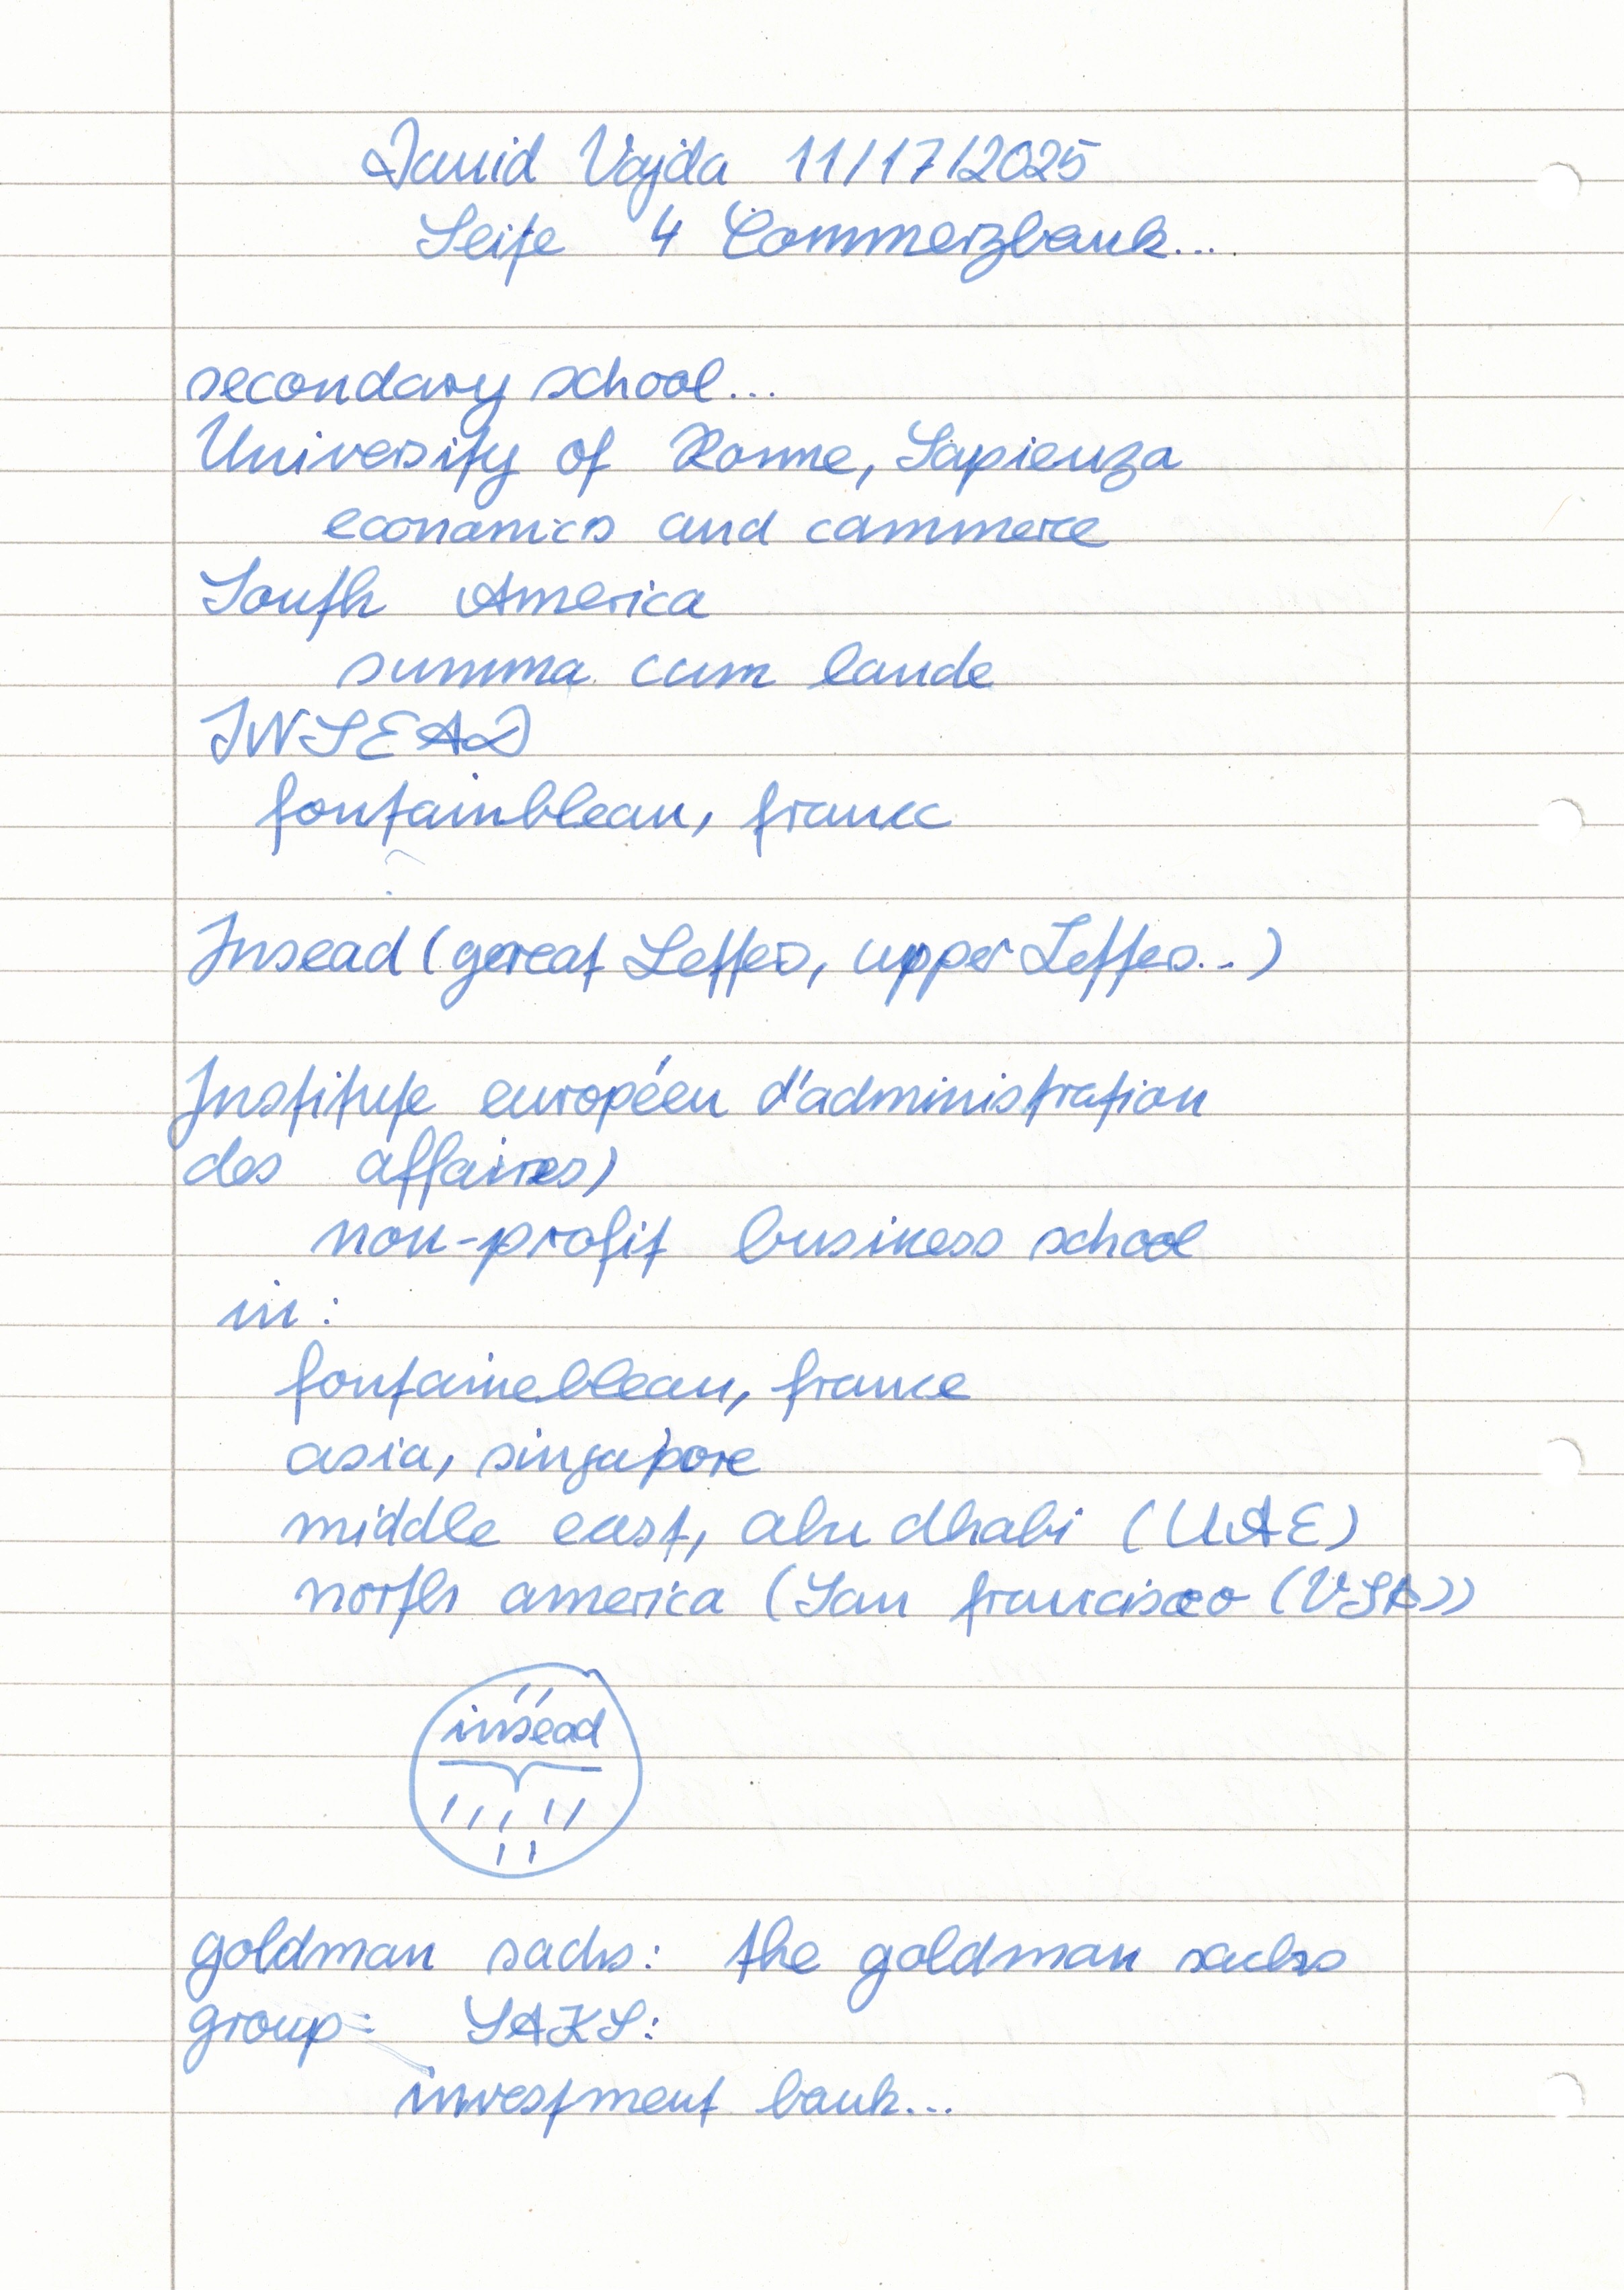 David Vajda 11/17/2025
Seite 4 Commerzbank...
secondary school...
University of Rome, Sapienza
economics and commerce
South America
summa cum laude
INSEAD
fontainbleau, france
Insead (gereat Letters, upper Letters...)
Institute européen d'administration
des affaires)
non-profit business school
in:
fontainebleau, france
asia, singapore
middle east, abu dhabi (UAE)
north america (San francisco (USA))
insead
goldman sachs: the goldman sachs
group: SAKS:
investment bank...